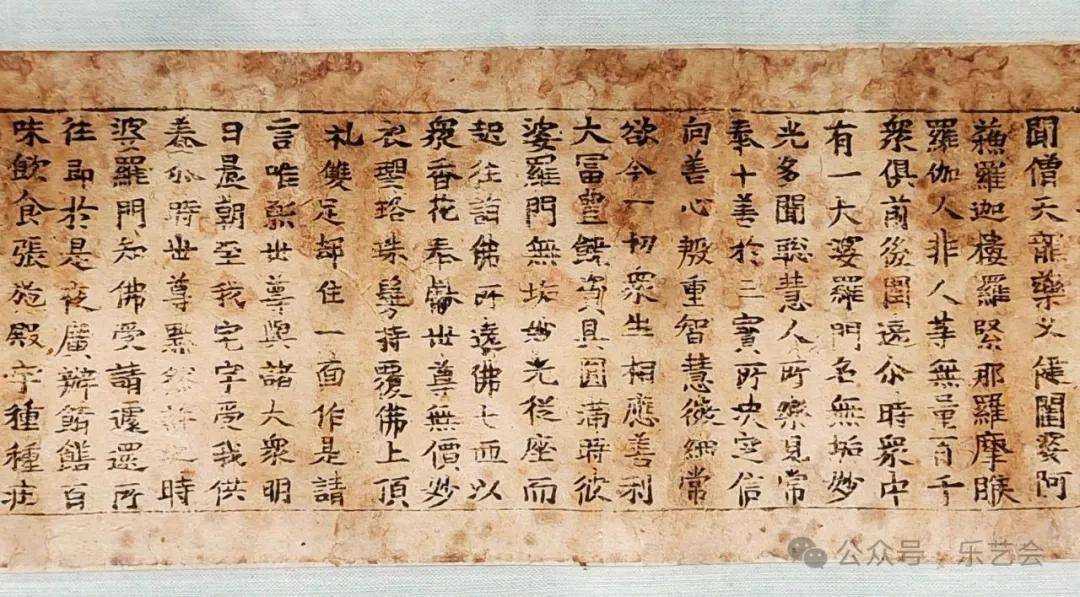 聞僧天龍藥叉健闥婆阿
蘇羅迦樓羅緊那羅摩睺
羅伽人非人等無量百千
衆俱前後圍遶尒時衆中
有一大婆羅門名無垢妙
光多聞聡慧人所樂見常
奉十善於三寶所決定信
向善心殷重智慧微細常
欲令一切衆生相應善利
大冨豐饒資具圓滿時彼
婆羅門無垢妙光從座而
起往詣佛所遶佛七匝以
衆香花奉獻世尊無價妙
衣瓔珞珠鬘持覆佛上頂
礼雙足却住一面作是請
言唯願世尊與諸大衆明
日晨朝至我宅宇受我供
養尒時世尊默然許之時
婆羅門知佛受請遽還所
住即於是夜廣辦餚饍百
味飲食張施殿宇種種庄
公众号·乐艺会